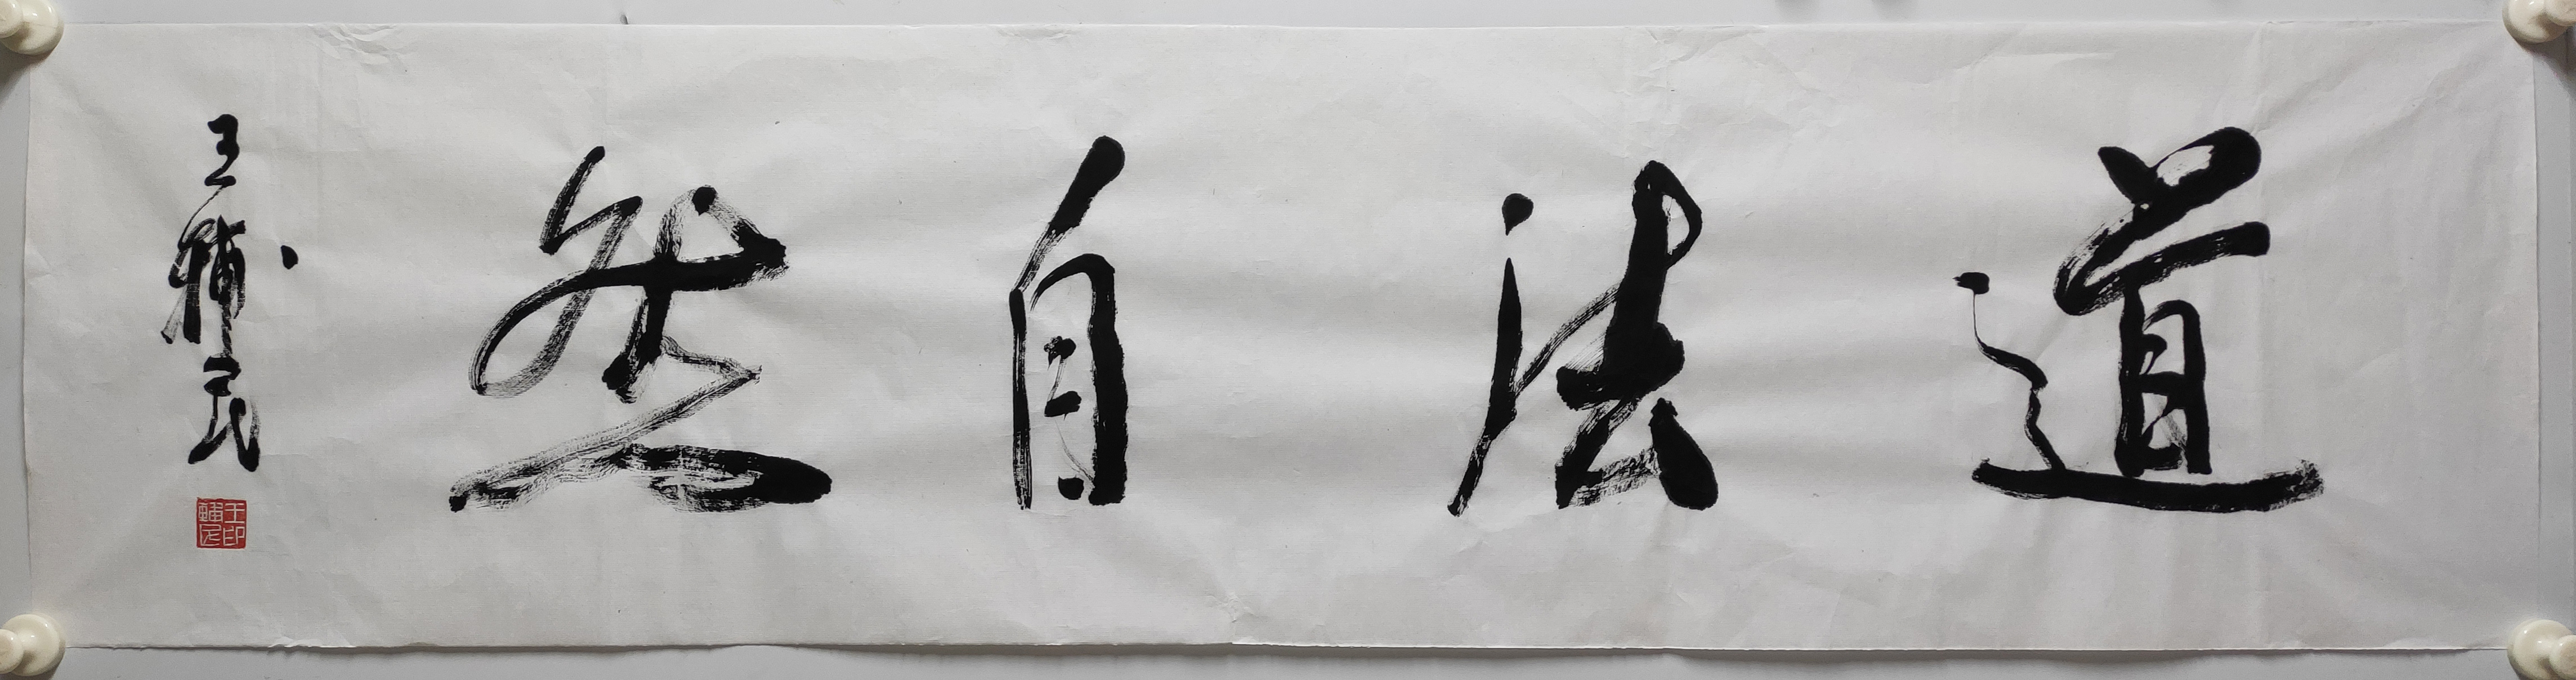 道法自然
王辅民
王印
輔民